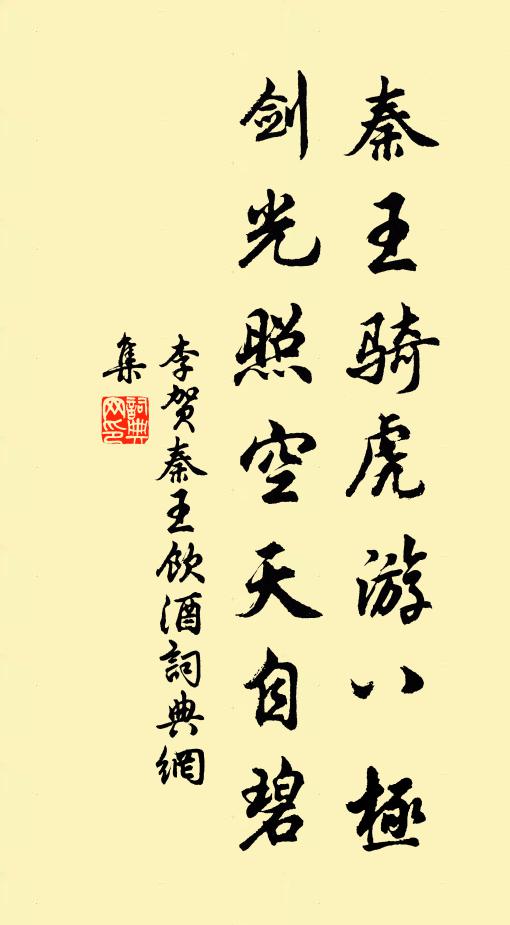 秦王骑虎游八極
剑光照空天自碧
李贺秦王飲酒詞典網
集
詞典网印